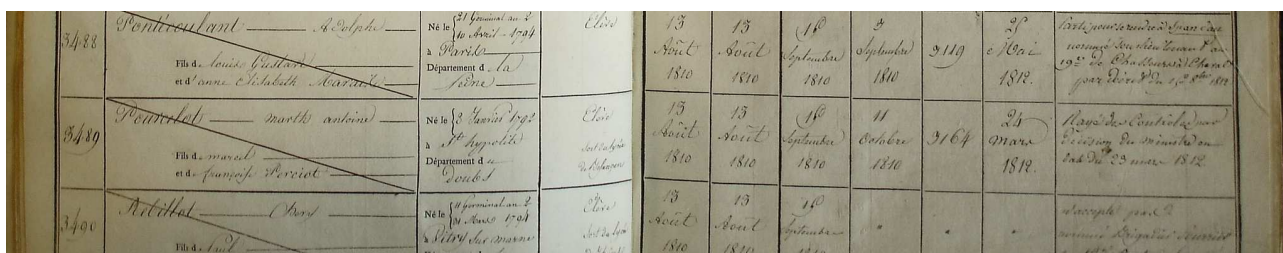 3488
Pontécoulant Adolphe
Fils de Louis Gustave
et d'anne Elisabeth
Né le 21 Germinal an 2
10 Avril 1794
à Paris
Département d la
Seine
Elève
13 Août 1810
13 Août 1810
16 Septembre 1810
Septembre 1810
3119
25 Mai 1812.
nommé Sous Lieutenant au
19e de Chasseurs à Cheval
par décret du
3489
marth antoine
Fils d marcil
et d françoise Perciot
Né le 2 Janvier 1792
à St hypolite
Département du
doubs
Elève
Sort du Lycée
de Besançon
13 Août 1810
13 Août 1810
16 Septembre 1810
11 Octobre 1810
3164
24 mars 1812.
Rayé des Controles par
décision du ministre en
date du 23 mars 1812
3490
Ribillot
Fils d
Né le 11 Germinal an 2
31 Mars 1794
à Vitry sur marne
Elève
Sort du Lycée
13 Août 1810
13 Août 1810
16 Septembre 1810
n'accepte pas
nommé Brigadier fourrier